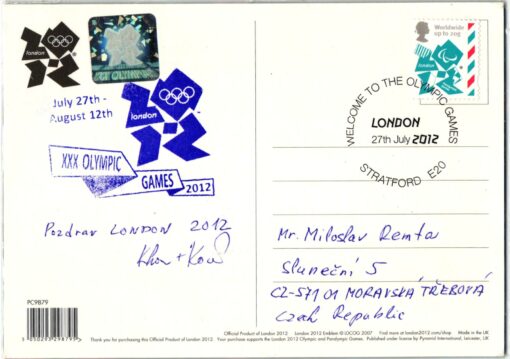 london
LONDON OLYMPIC
Worldwide
up to 20g
July 27th -
August 12th
london
XXX OLYMPIC
GAMES 2012
WELCOME TO THE OLYMPIC GAMES
LONDON
27th July 2012
STRATFORD E20
Pozdrav LONDON 2012
Mr. Miloslav Remta
Sluneční 5
CZ-571 01 MORAVSKÁ TŘEBOVÁ
Czech Republic
PC9879
5 050293 298795 >
Official Product of London 2012 London 2012 Emblem © LOCOG 2007 Find more at london2012.com/shop Made in the UK
Thank you for purchasing this Official Product of London 2012. Your purchase supports the London 2012 Olympic and Paralympic Games. Published under license by Pyramid International, Leicester, UK